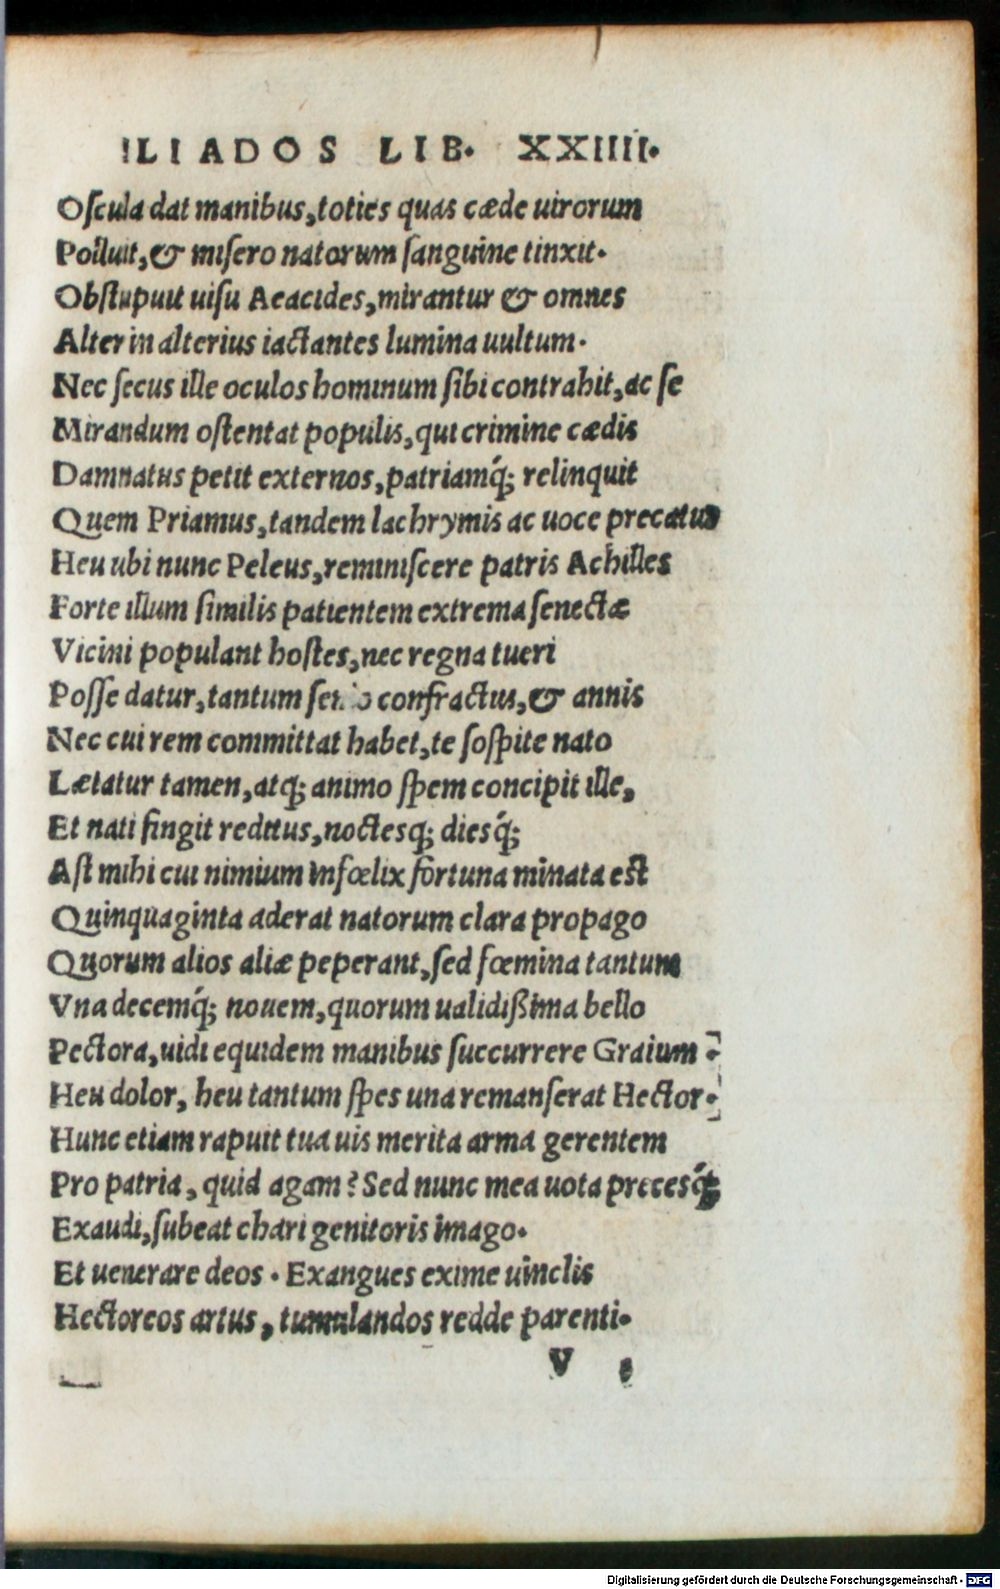 ILIADOS LIB. XXIIII.
Oscula dat manibus, toties quas cæde uirorum
Polluit, & misero natorum sanguine tinxit.
Obstupuit uisu Aeacides, mirantur & omnes
Alter in alterius iactantes lumina uultum.
Nec secus ille oculos hominum sibi contrahit, ac se
Mirandum ostentat populis, qui crimine cædis
Damnatus petit externos, patriamq́; relinquit
Quem Priamus, tandem lachrymis ac uoce precatur
Heu ubi nunc Peleus, reminiscere patris Achilles
Forte illum similis patientem extrema senectæ
Vicini populant hostes, nec regna tueri
Posse datur, tantum confractus, & annis
Nec cui rem committat habet, te sospite nato
Lætatur tamen, atq; animo spem concipit ille,
Et nati fingit reditus, noctesq; diesq́;
Ast mihi cui nimium infœlix fortuna minata est
Quinquaginta aderat natorum clara propago
Quorum alios aliæ peperant, sed fœmina tantum
Vna decemq́; nouem, quorum ualidißima bello
Pectora, uidi equidem manibus succurrere Graium.
Heu dolor, heu tantum spes una remanserat Hector.
Hunc etiam rapuit tua uis merita arma gerentem
Pro patria, quid agam? Sed nunc mea uota precesq́;
Exaudi, subeat chari genitoris imago.
Et uenerare deos. Exangues exime uinclis
Hectoreos artus, tumulandos redde parenti.
V
Digitalisierung gefördert durch die Deutsche Forschungsgemeinschaft - DFG